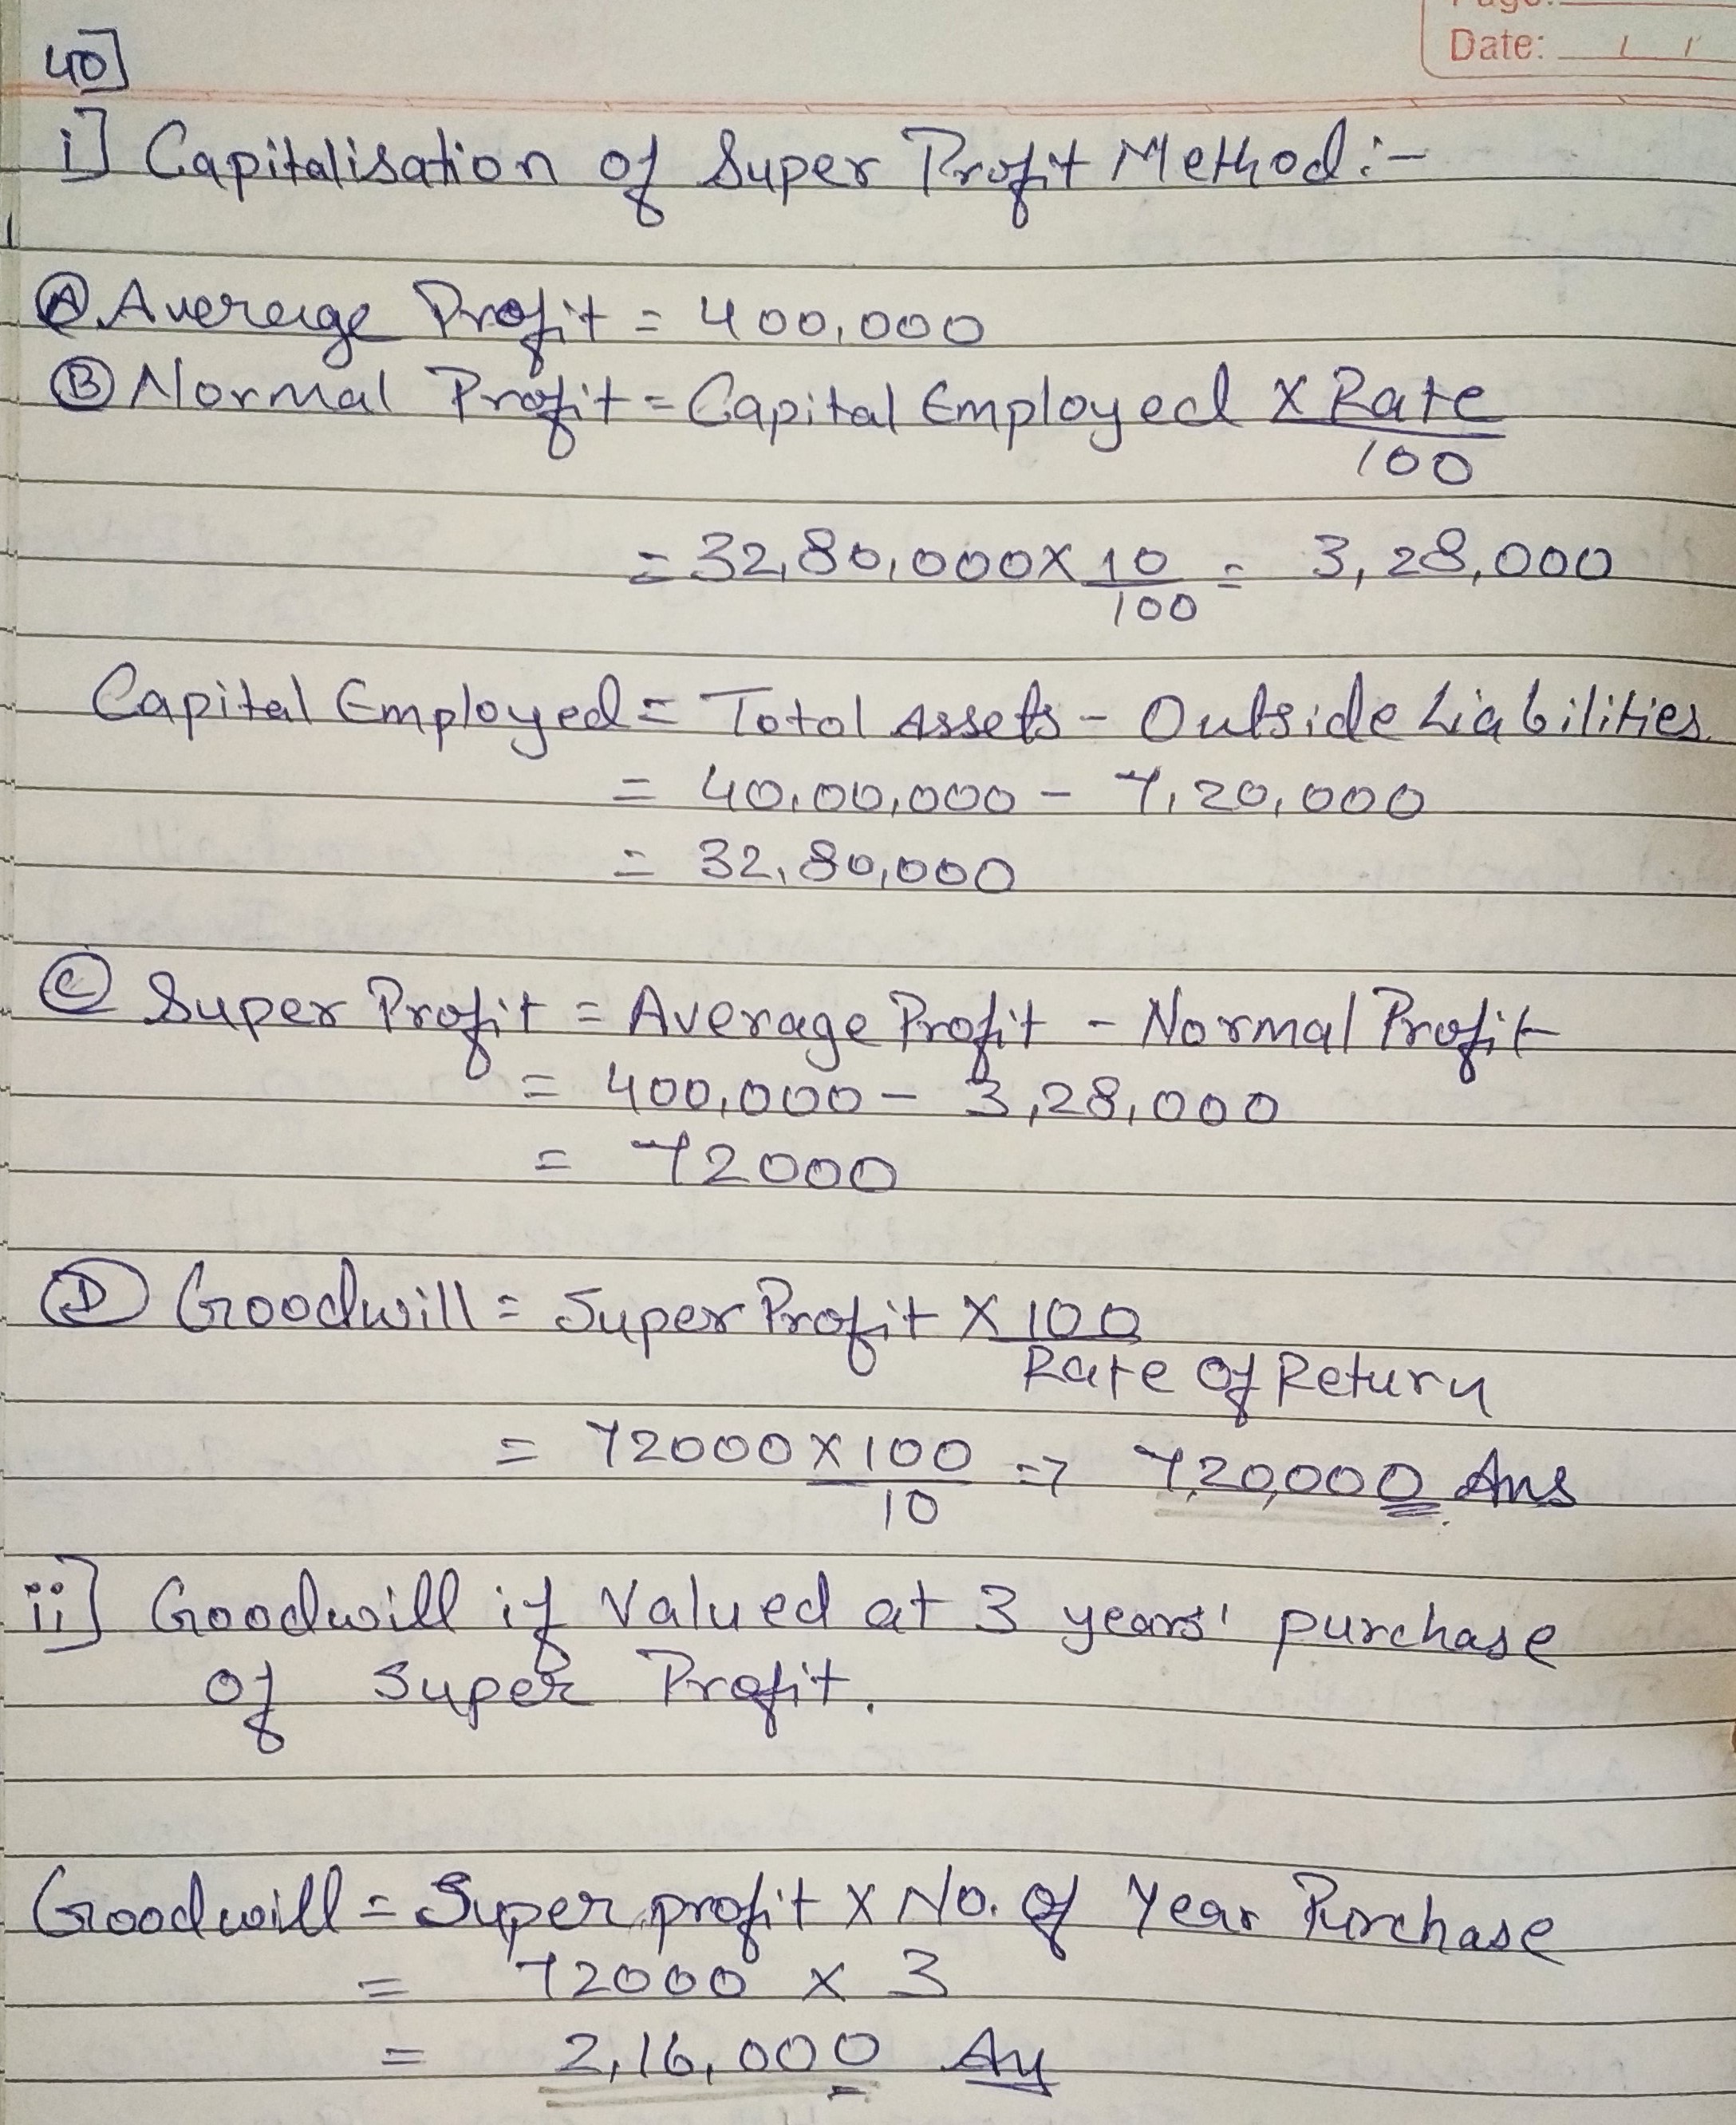 Date:
40]
i] Capitalisation of Super Profit Method:-
Ⓐ Avereige Profit = 400,000
Ⓑ Normal Profit = Capital Employed X Rate
100
= 32,80,000 X 10 = 3,28,000
100
Capital Employed = Total Assets - Outside Liabilities
= 40,00,000 - 7,20,000
= 32,80,000
Ⓒ Super Profit = Average Profit - Normal Profit
= 400,000 - 3,28,000
= 72000
Ⓓ Goodwill = Super Profit X 100
Rate of Return
= 72000 X 100 => 7,20,000 Ans
10
ii] Goodwill if Valued at 3 years' purchase
of Super Profit.
Goodwill = Super profit X No. of Year Purchase
= 72000 X 3
= 2,16,000